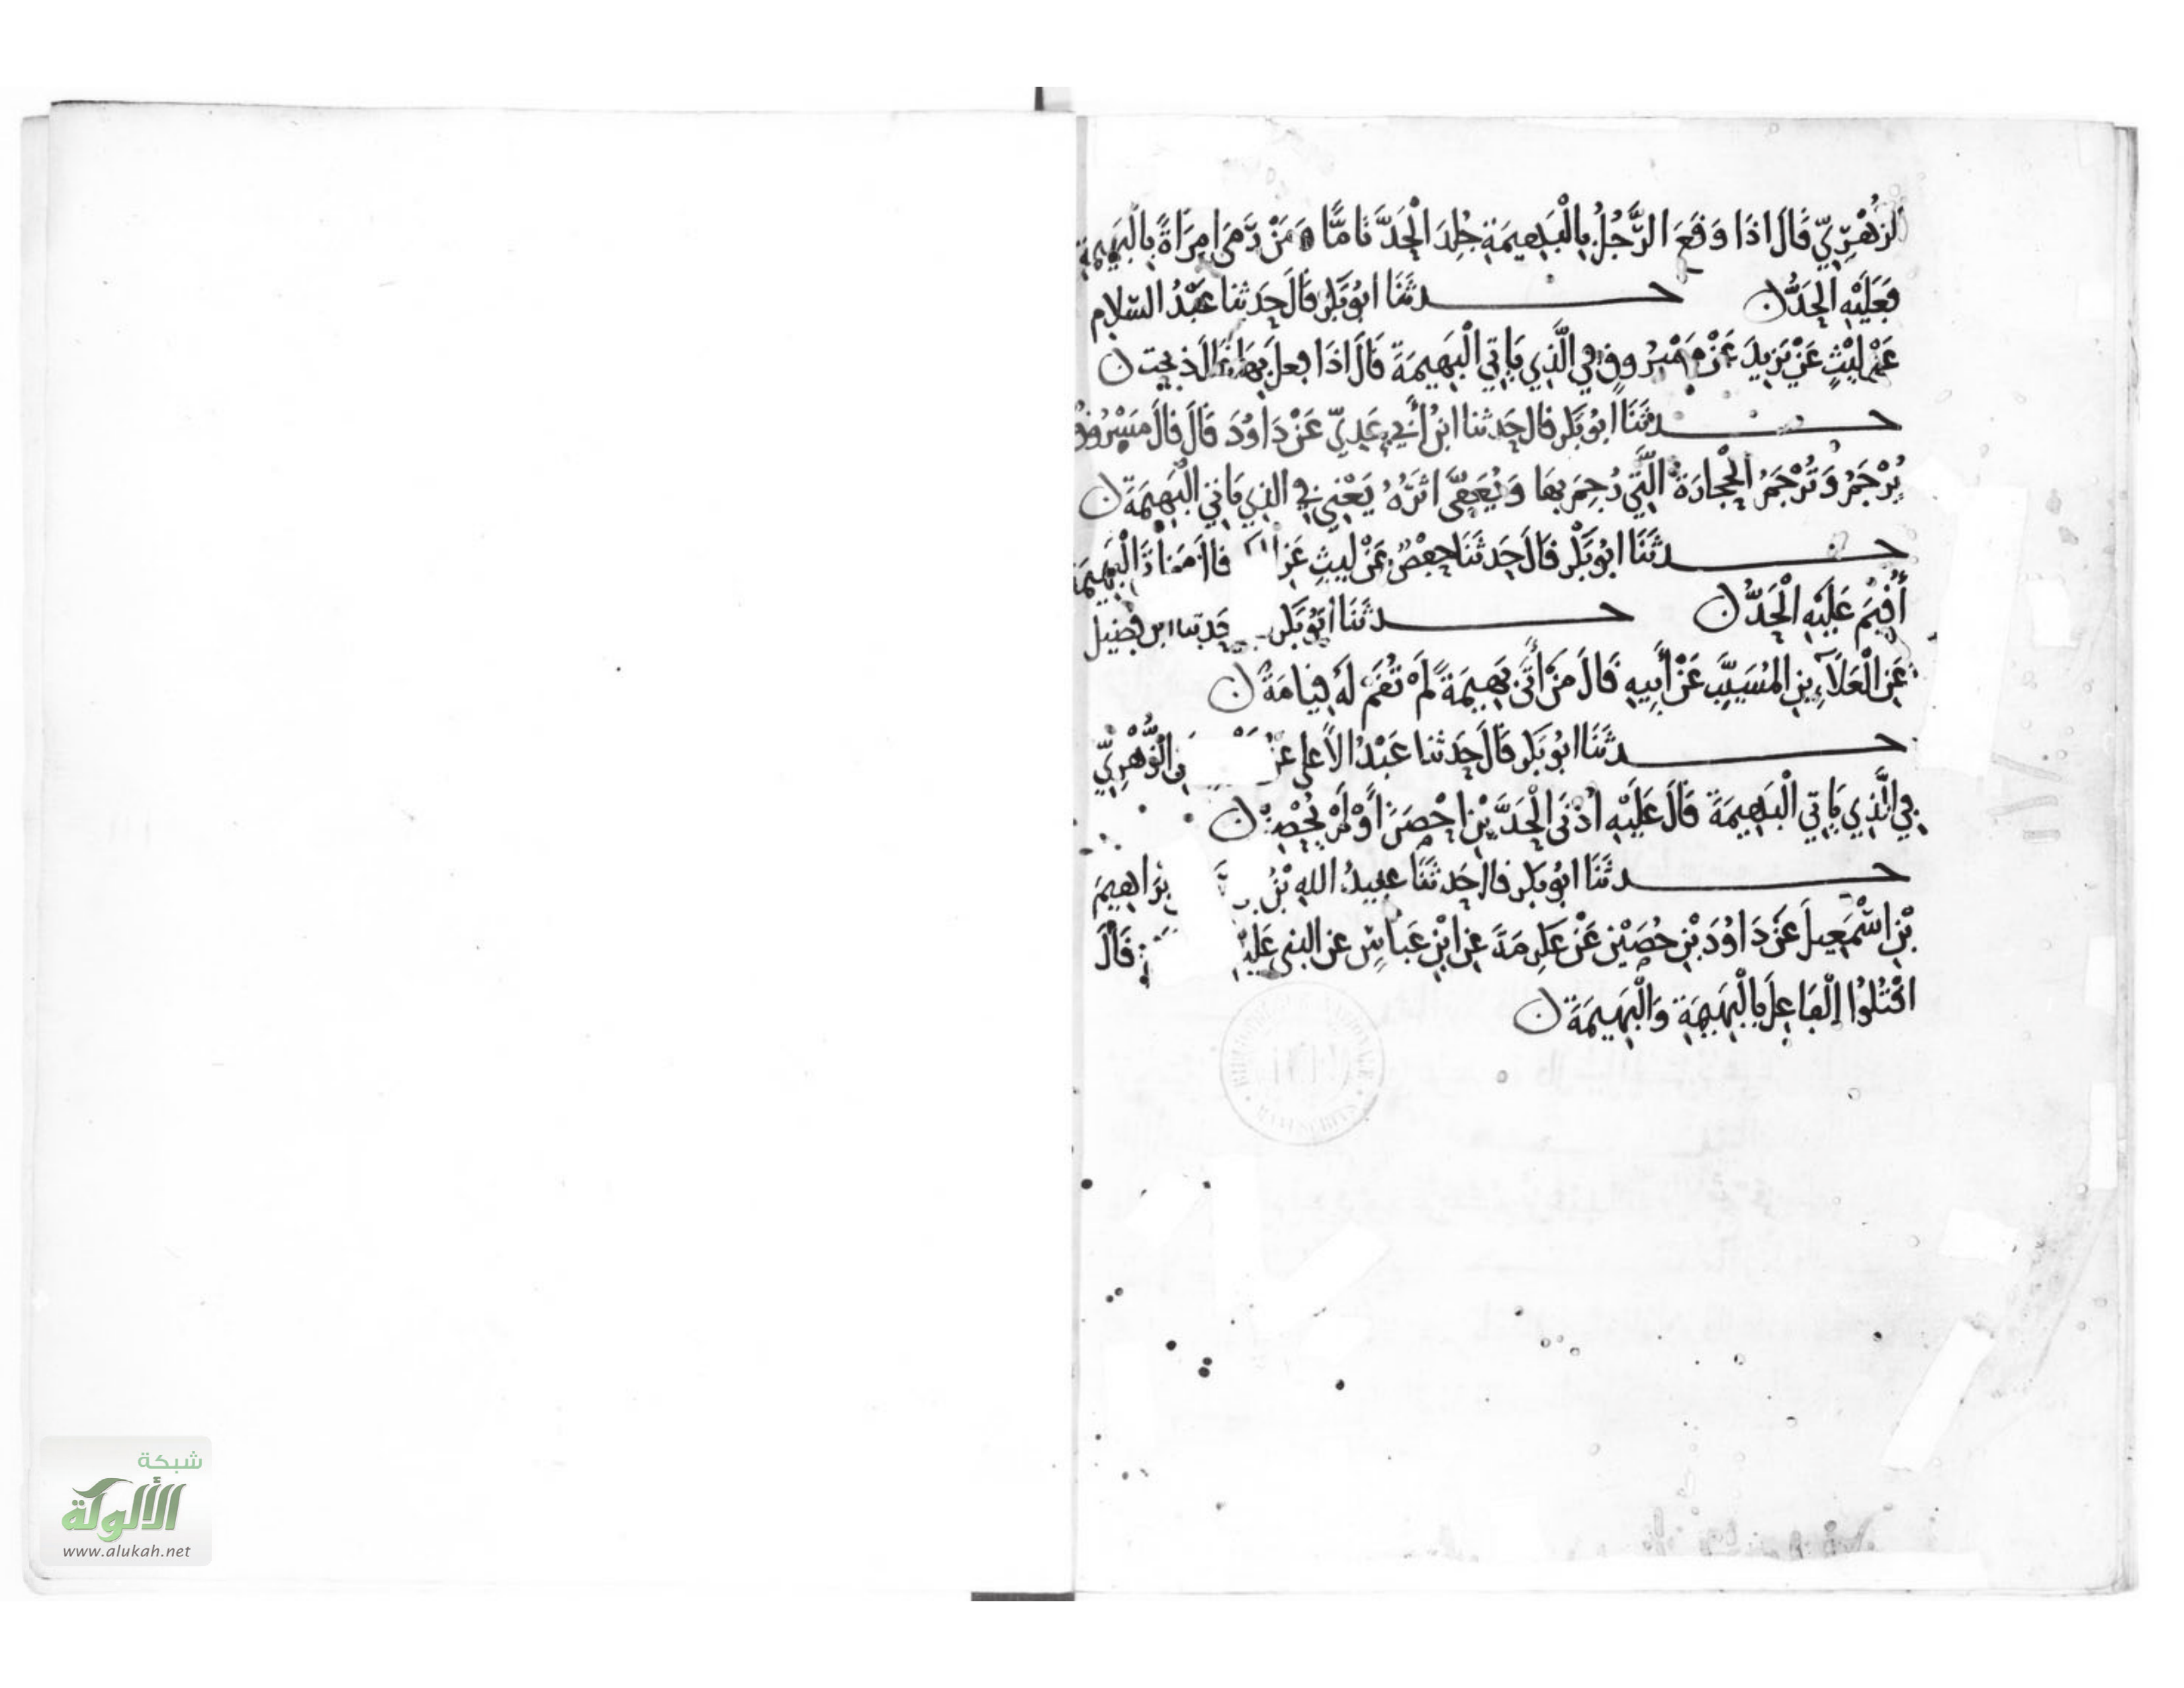 الزُّهْرِيِّ قَالَ اذَا وَقَعَ الرَّجُلُ بِالْبَهِيمَةِ جُلِدَ الْحَدَّ تَامًّا وَمَنْ رَمَى امرَاةً بِالْبَهِيمَةِ
فَعَلَيْهِ الحَدُّ حدثَنَا ابُو بَكْرٍ قَالَ حَدثنا عَبْدُ السّلام
عَنْ لَيْثٍ عَنْ يَزِيدَ عَنْ مَسْرُوقٍ فِي الَّذِي يَاتِي الْبَهِيمَةَ قَالَ اذَا فعلَ بِهَا ذبحت
حدثَنَا ابُو بَكْرٍ قال حَدثنا ابنُ أَبِي عَدِيّ عَنْ دَاوُدَ قَالَ قَالَ مَسْرُوقٌ
يُرْجَمُ وَتُرْجَمُ الْحِجَارَةُ الَّتِي رُجِمَ بِهَا وَيُعَفَّى اثَرُهُ يَعْنِي فِي الذِي يَاتِي الْبَهِيمَةَ
حدثَنَا ابُو بَكْرٍ قَالَ حَدثَنَا حفْصٌ عَنْ ليثٍ عَنِ قال مَن أَتَى الْبَهِيمَةَ
أُقِيمَ عَلَيْهِ الْحَدُّ حدثَنَا ابُو بَكْرٍ حَدثنا ابن فضيل
عَنِ الْعَلَآءِ بنِ المُسَيَّبِ عَنْ أَبِيهِ قَالَ مَنْ أَتَى بَهِيمَةً لَمْ تُقَمْ لَهُ قِيامَةٌ
حدثَنَا ابُو بَكْرٍ قَالَ حَدثنا عَبْدُ الاَعلى عَنْ الزُّهْرِيِّ
فِي الَّذِي يَاتِي الْبَهِيمَةَ قَالَ عَلَيْهِ أَدْنَى الْحَدَّيْنِ احْصَنَ أَوْ لَمْ يُحْصِنْ
حدثَنَا ابُو بَكْرٍ قال حَدثَنَا عبيدُ اللهِ بْنُ ابْرَاهِيمَ
بْنِ اسْمَعِيلَ عَنْ دَاوُدَ بْنِ حُصَيْنٍ عَنْ عِكْرِمَةَ عنِ ابْنِ عَبَّاسٍ عن النبي عَلَيْهِ قَالَ
اقْتُلُوا الْفَاعِلَ بِالْبَهِيمَةِ وَالْبَهِيمَةَ
BIBLIOTHEQUE NATIONALE
MANUSCRITS
شبكة
الألوكة
www.alukah.net